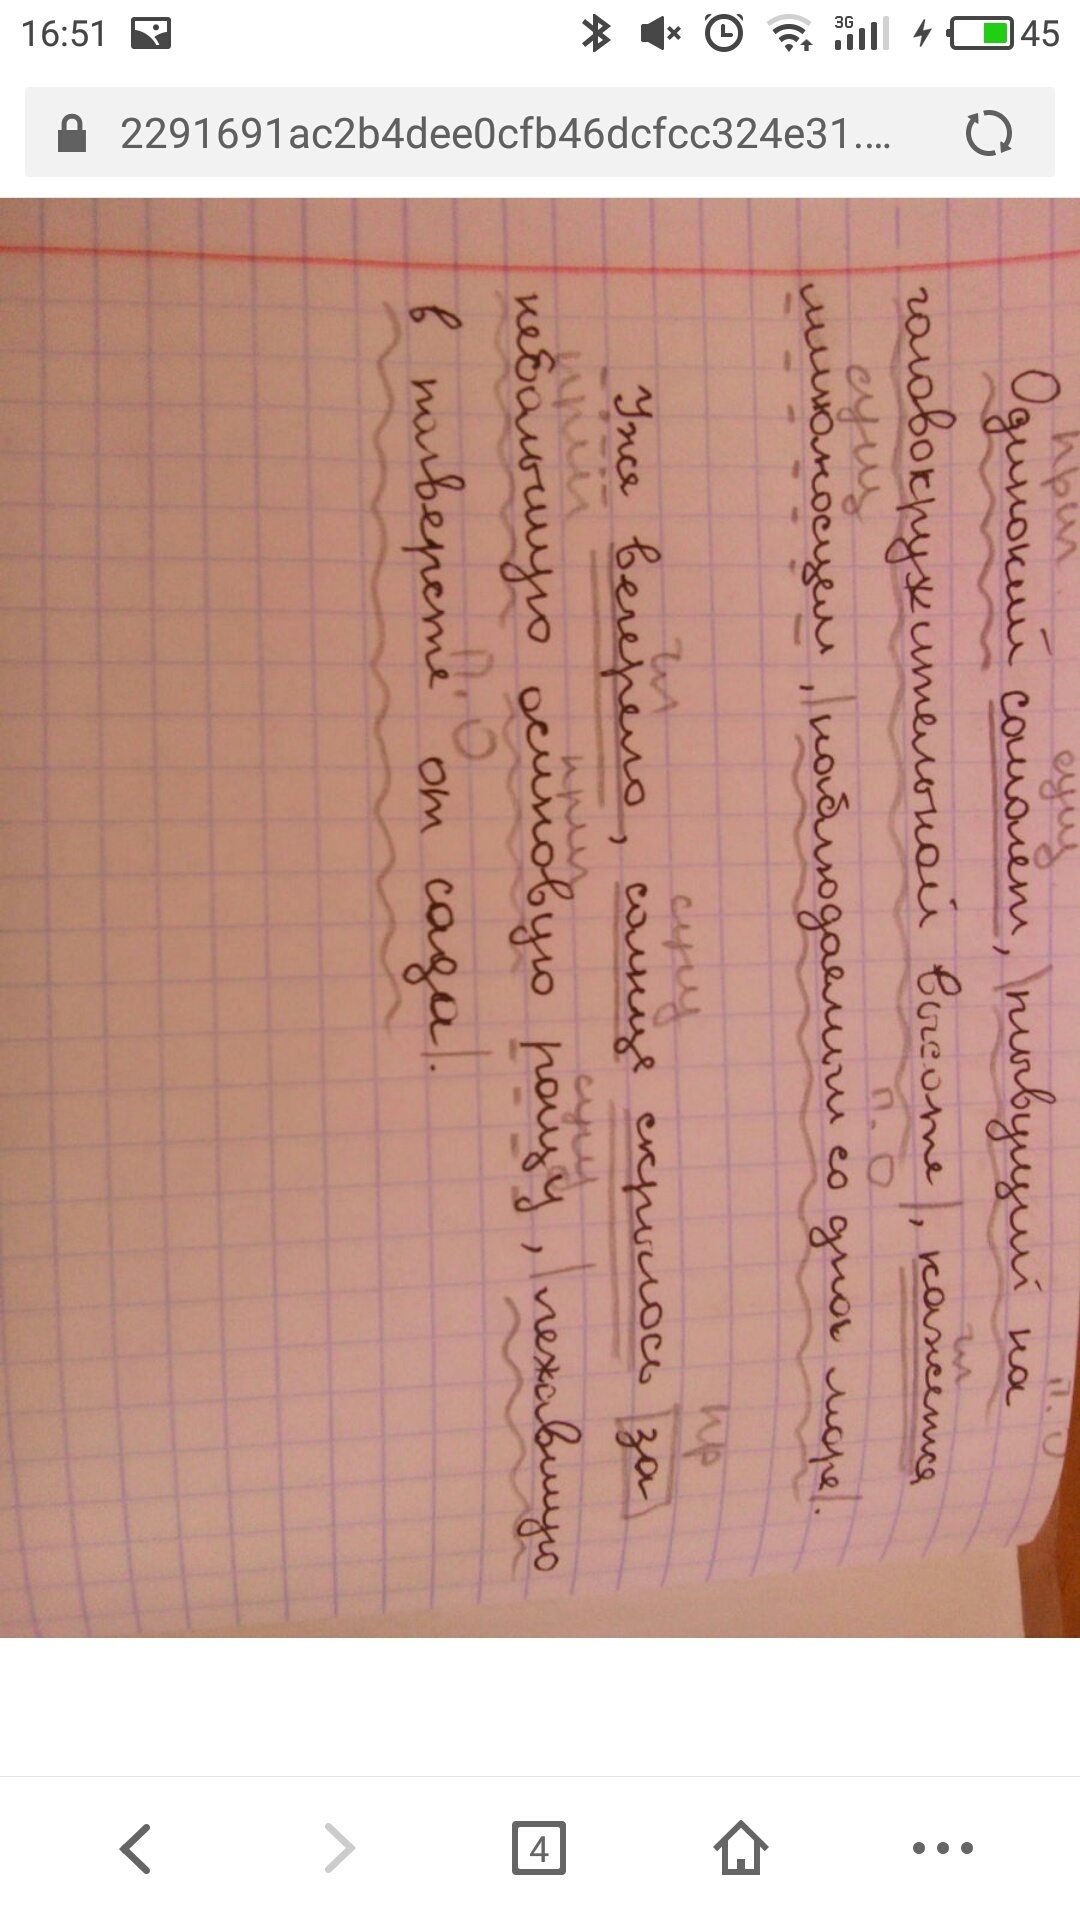 16:51
3G
45
2291691ac2b4dee0cfb46dcfcc324e31....
прил сущ п.О
Одинокий самолет, |плывущий на
гл
головокружительной высоте|, кажется
сущ п.О
миноносцем, |наблюдаемым со дна моря|.
гл сущ пр
Уже вечерело, солнце скрылось за
прил прил сущ
небольшую осиновую рощу, |лежавшую
п.О
в полверсте от сада|.
4